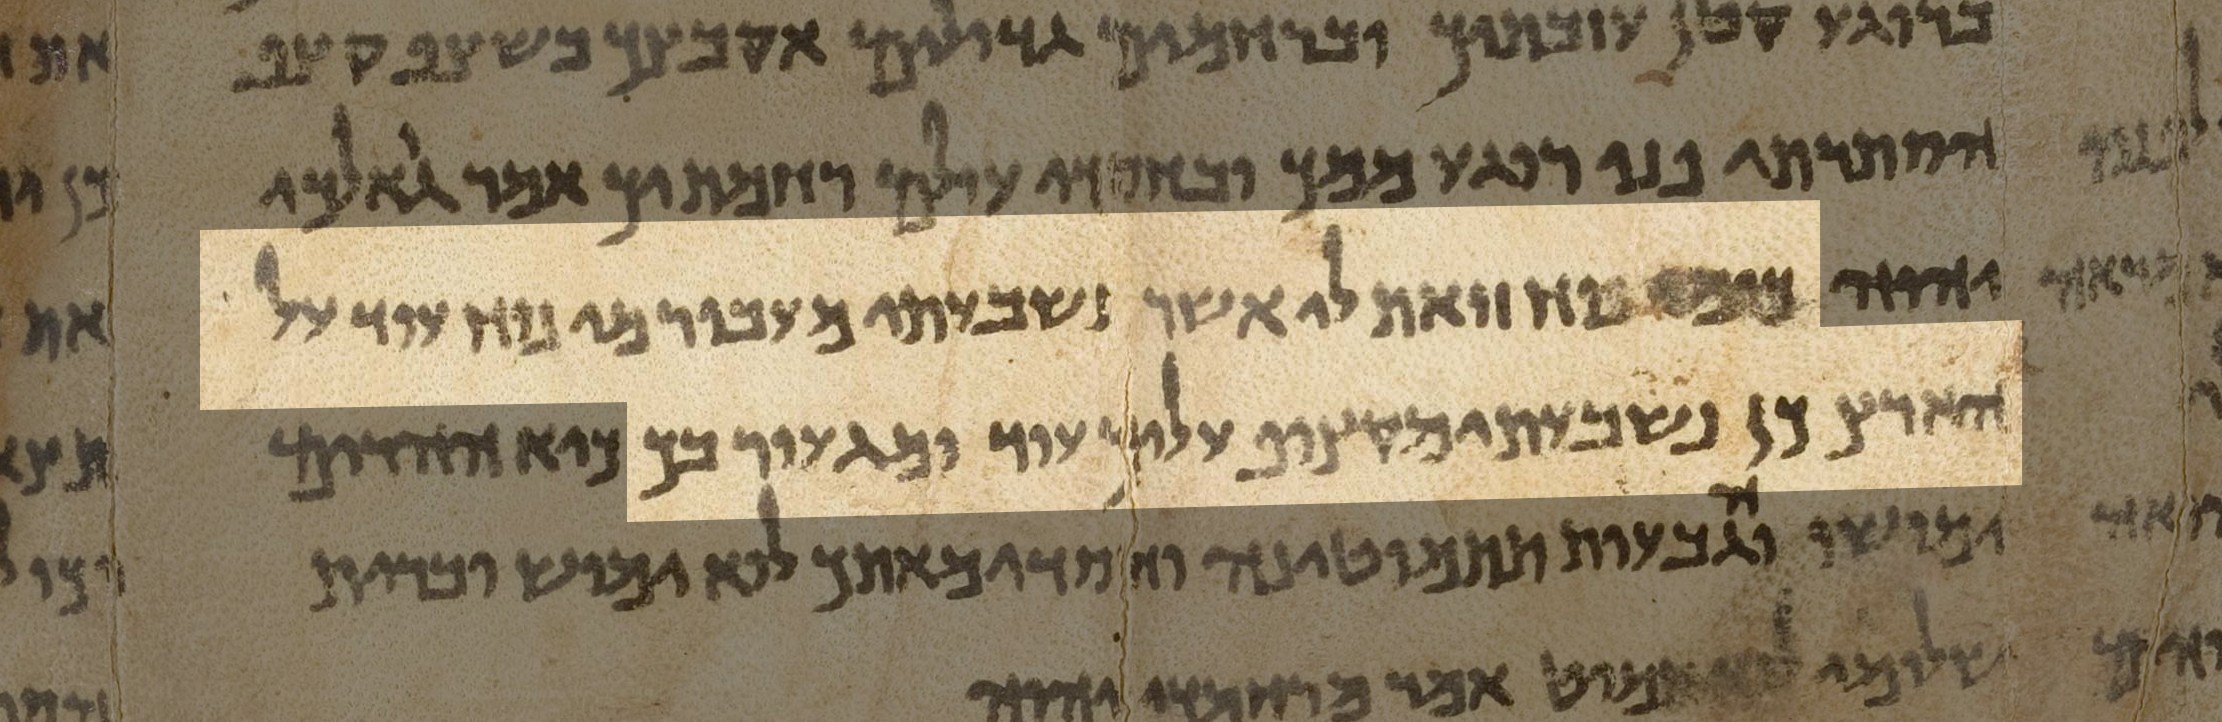 ברוגע קטן עזבתיך וברחמים גדולים אקבצך בשצף קצף
הסתרתי פני רגע ממך ובחסדי עולם רחמתיך אמר גאלכי
יהוה כימי נוח זואת לי אשר נשבעתי מעבור מי נוח עוד על
הארץ כן נשבעתי מקצוף עליך עוד ומגעור בך כיא ההרים
ימושו והגבעות תתמוטינה וחסדי מאתך לוא ימוש וברית
שלומי לוא תמוט אמר מרחמכי יהוה